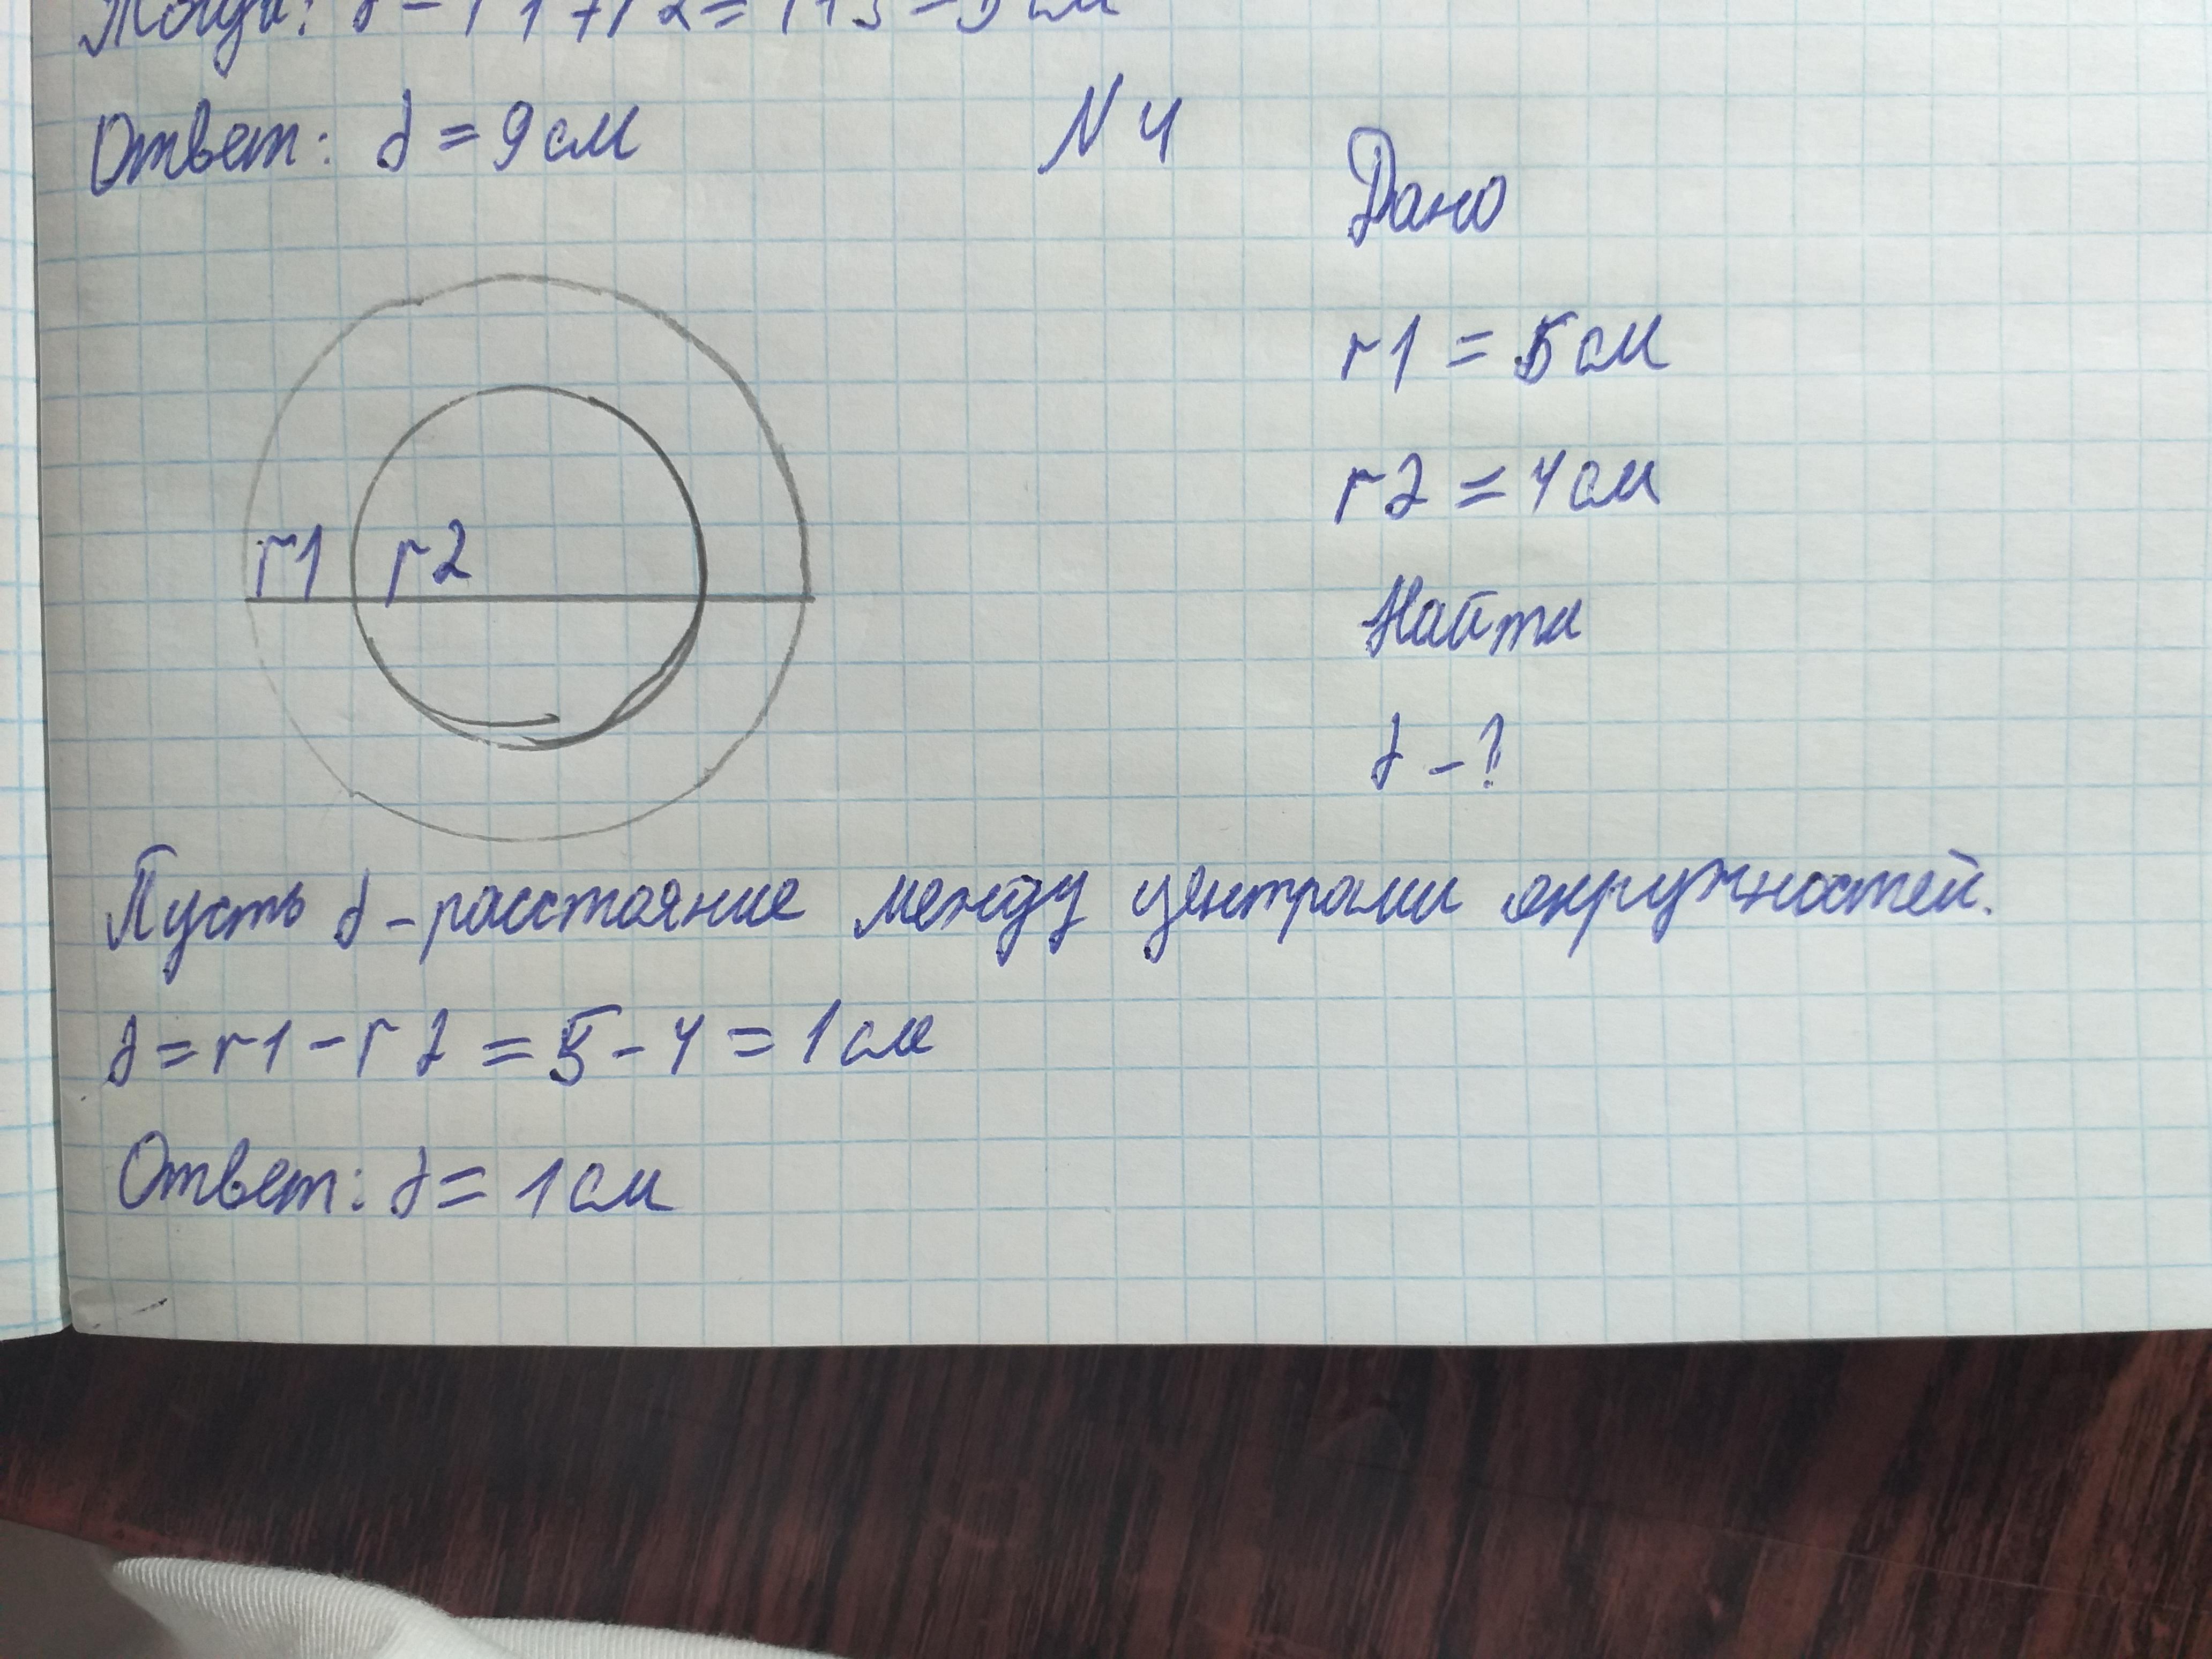 Тогда: d = r1 + r2 =
Ответ: d = 9 см
N 4
Дано
r1 = 5 см
r2 = 4 см
Найти
d - ?
r1 r2
Пусть d - расстояние между центрами окружностей.
d = r1 - r2 = 5 - 4 = 1 см
Ответ: d = 1 см